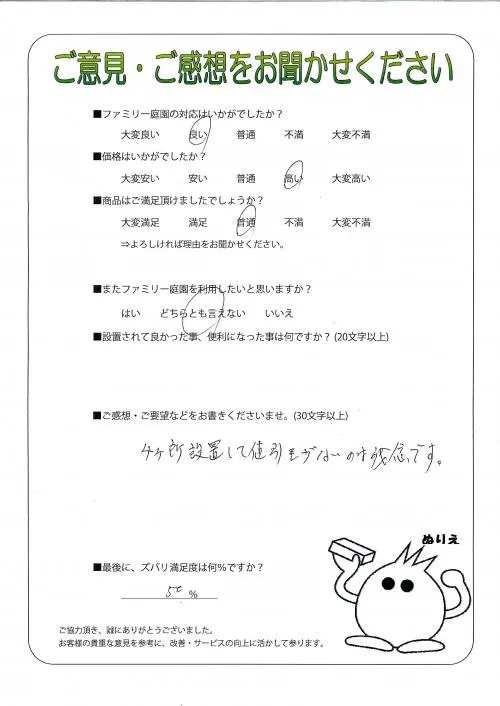 ご意見・ご感想をお聞かせください
■ファミリー庭園の対応はいかがでしたか？
大変良い 良い 普通 不満 大変不満
■価格はいかがでしたか？
大変安い 安い 普通 高い 大変高い
■商品はご満足頂けましたでしょうか？
大変満足 満足 普通 不満 大変不満
⇒よろしければ理由をお聞かせください。
■またファミリー庭園を利用したいと思いますか？
はい どちらとも言えない いいえ
■設置されて良かった事、便利になった事は何ですか？(20文字以上)
■ご感想・ご要望などをお書きくださいませ。(30文字以上)
4ヶ所設置して値引もがないのは残念です。
ぬりえ
■最後に、ズバリ満足度は何％ですか？
50 %
ご協力頂き、誠にありがとうございました。
お客様の貴重な意見を参考に、改善・サービスの向上に活かして参ります。